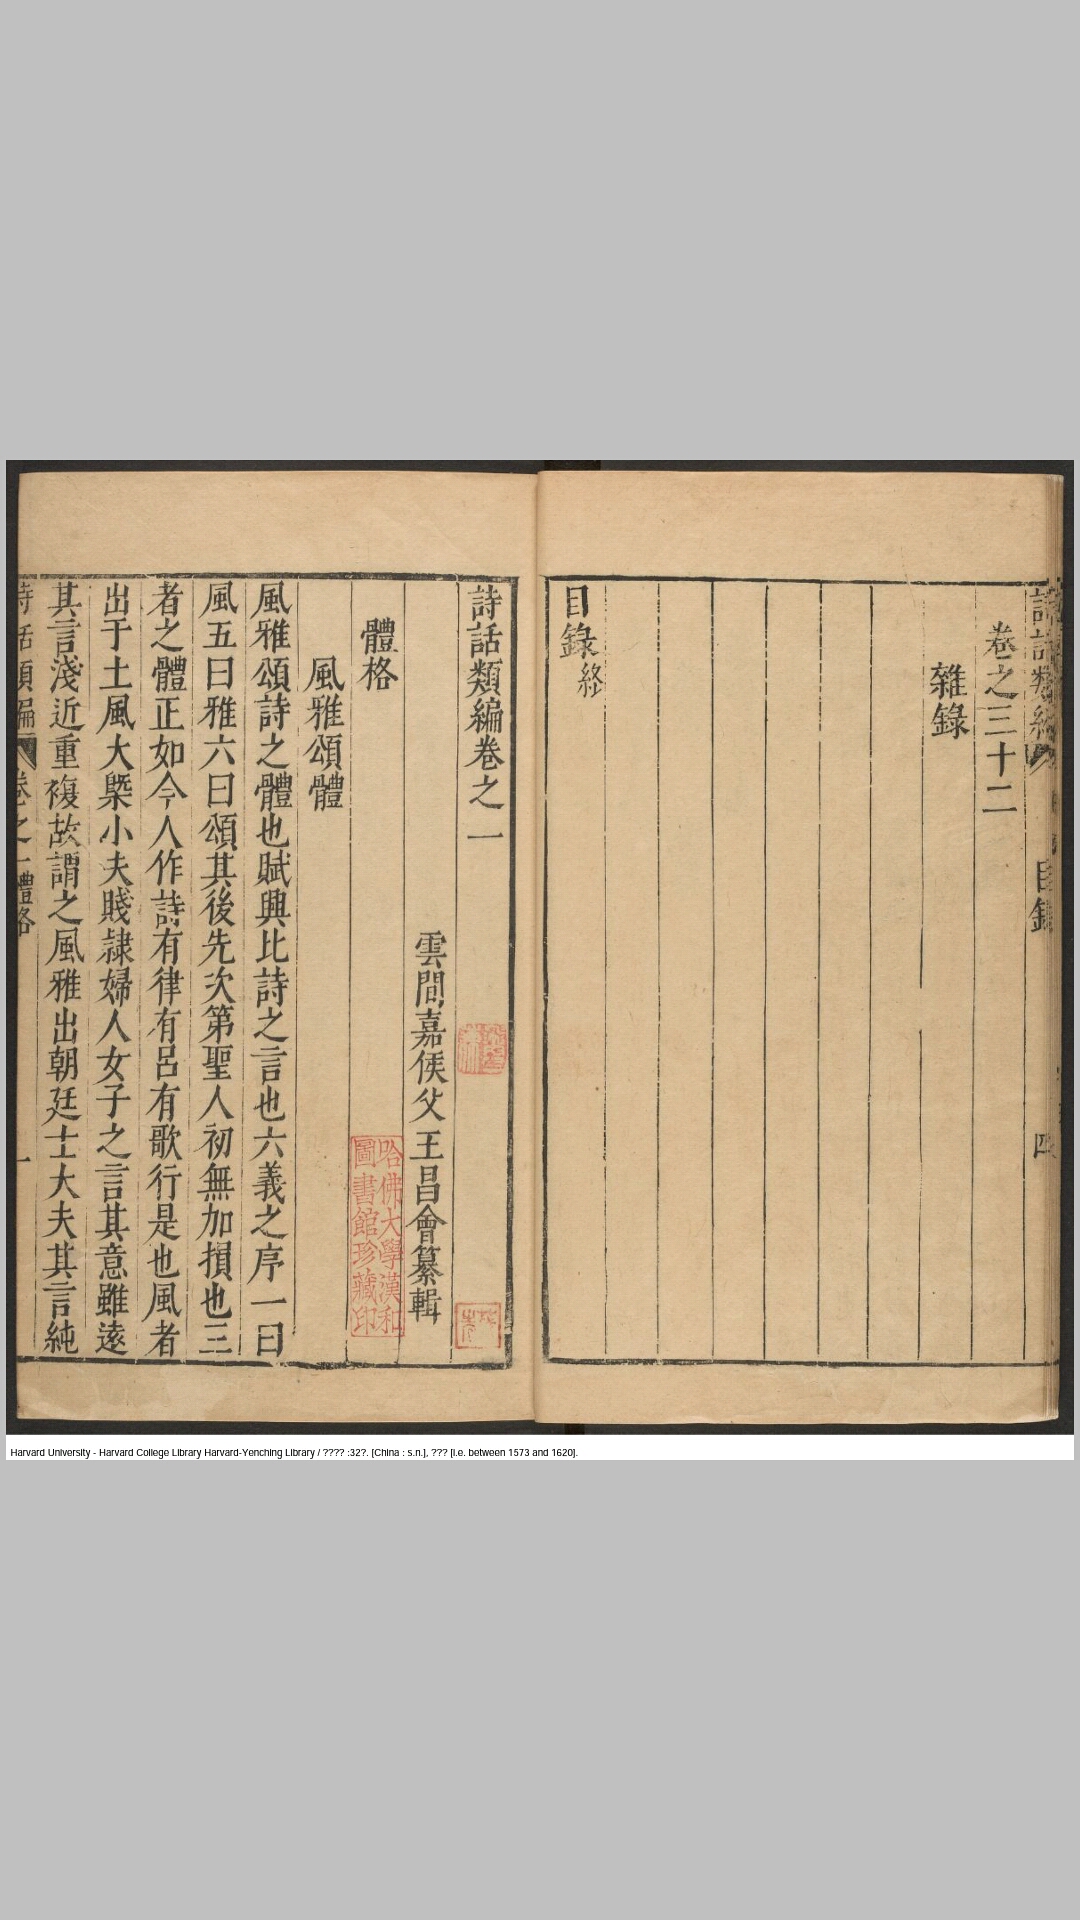 詩話類編
目錄
四
卷之三十二
雜錄
目錄終
詩話類編卷之一
雲間嘉侯父王昌會纂輯
體格
風雅頌體
風雅頌詩之體也賦興比詩之言也六義之序一曰
風五曰雅六曰頌其後先次第聖人初無加損也三
者之體正如今人作詩有律有呂有歌行是也風者
出于土風大槩小夫賤隸婦人女子之言其意雖遠
其言淺近重複故謂之風雅出朝廷士大夫其言純
詩話類編
卷之一體格
一
哈佛大學漢和
圖書館珍藏印
Harvard University - Harvard College Library Harvard-Yenching Library / ???? :32?. [China : s.n.], ??? [i.e. between 1573 and 1620].